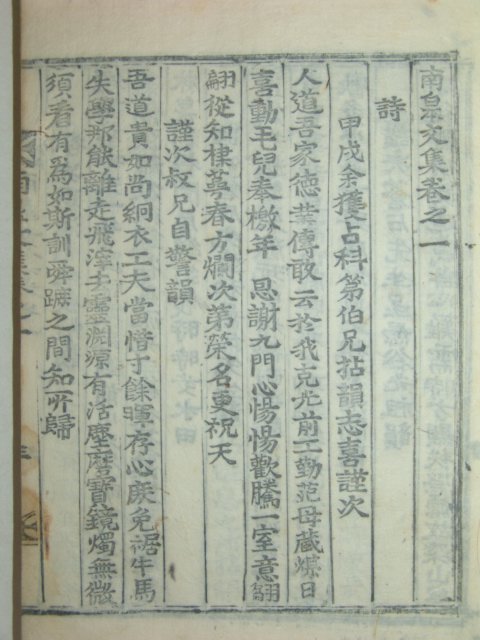 南皐文集卷之一
詩
甲戌余獲占科第伯兄拈韻志喜謹次
人道吾家德業傳敢云於我克光前工勤范母藏煤日
喜動毛兒奉檄年 恩謝九門心惕惕歡騰一室意翩
翩從知棣萼春方爛次第榮名更祝天
謹次叔兄自警韻
吾道費如尚絅衣工夫當惜寸餘暉存心庶免裾牛馬
失學那能離走飛滓去靈淵源有活塵磨寶鏡燭無微
須看有爲如斯訓舜蹠之間知所歸